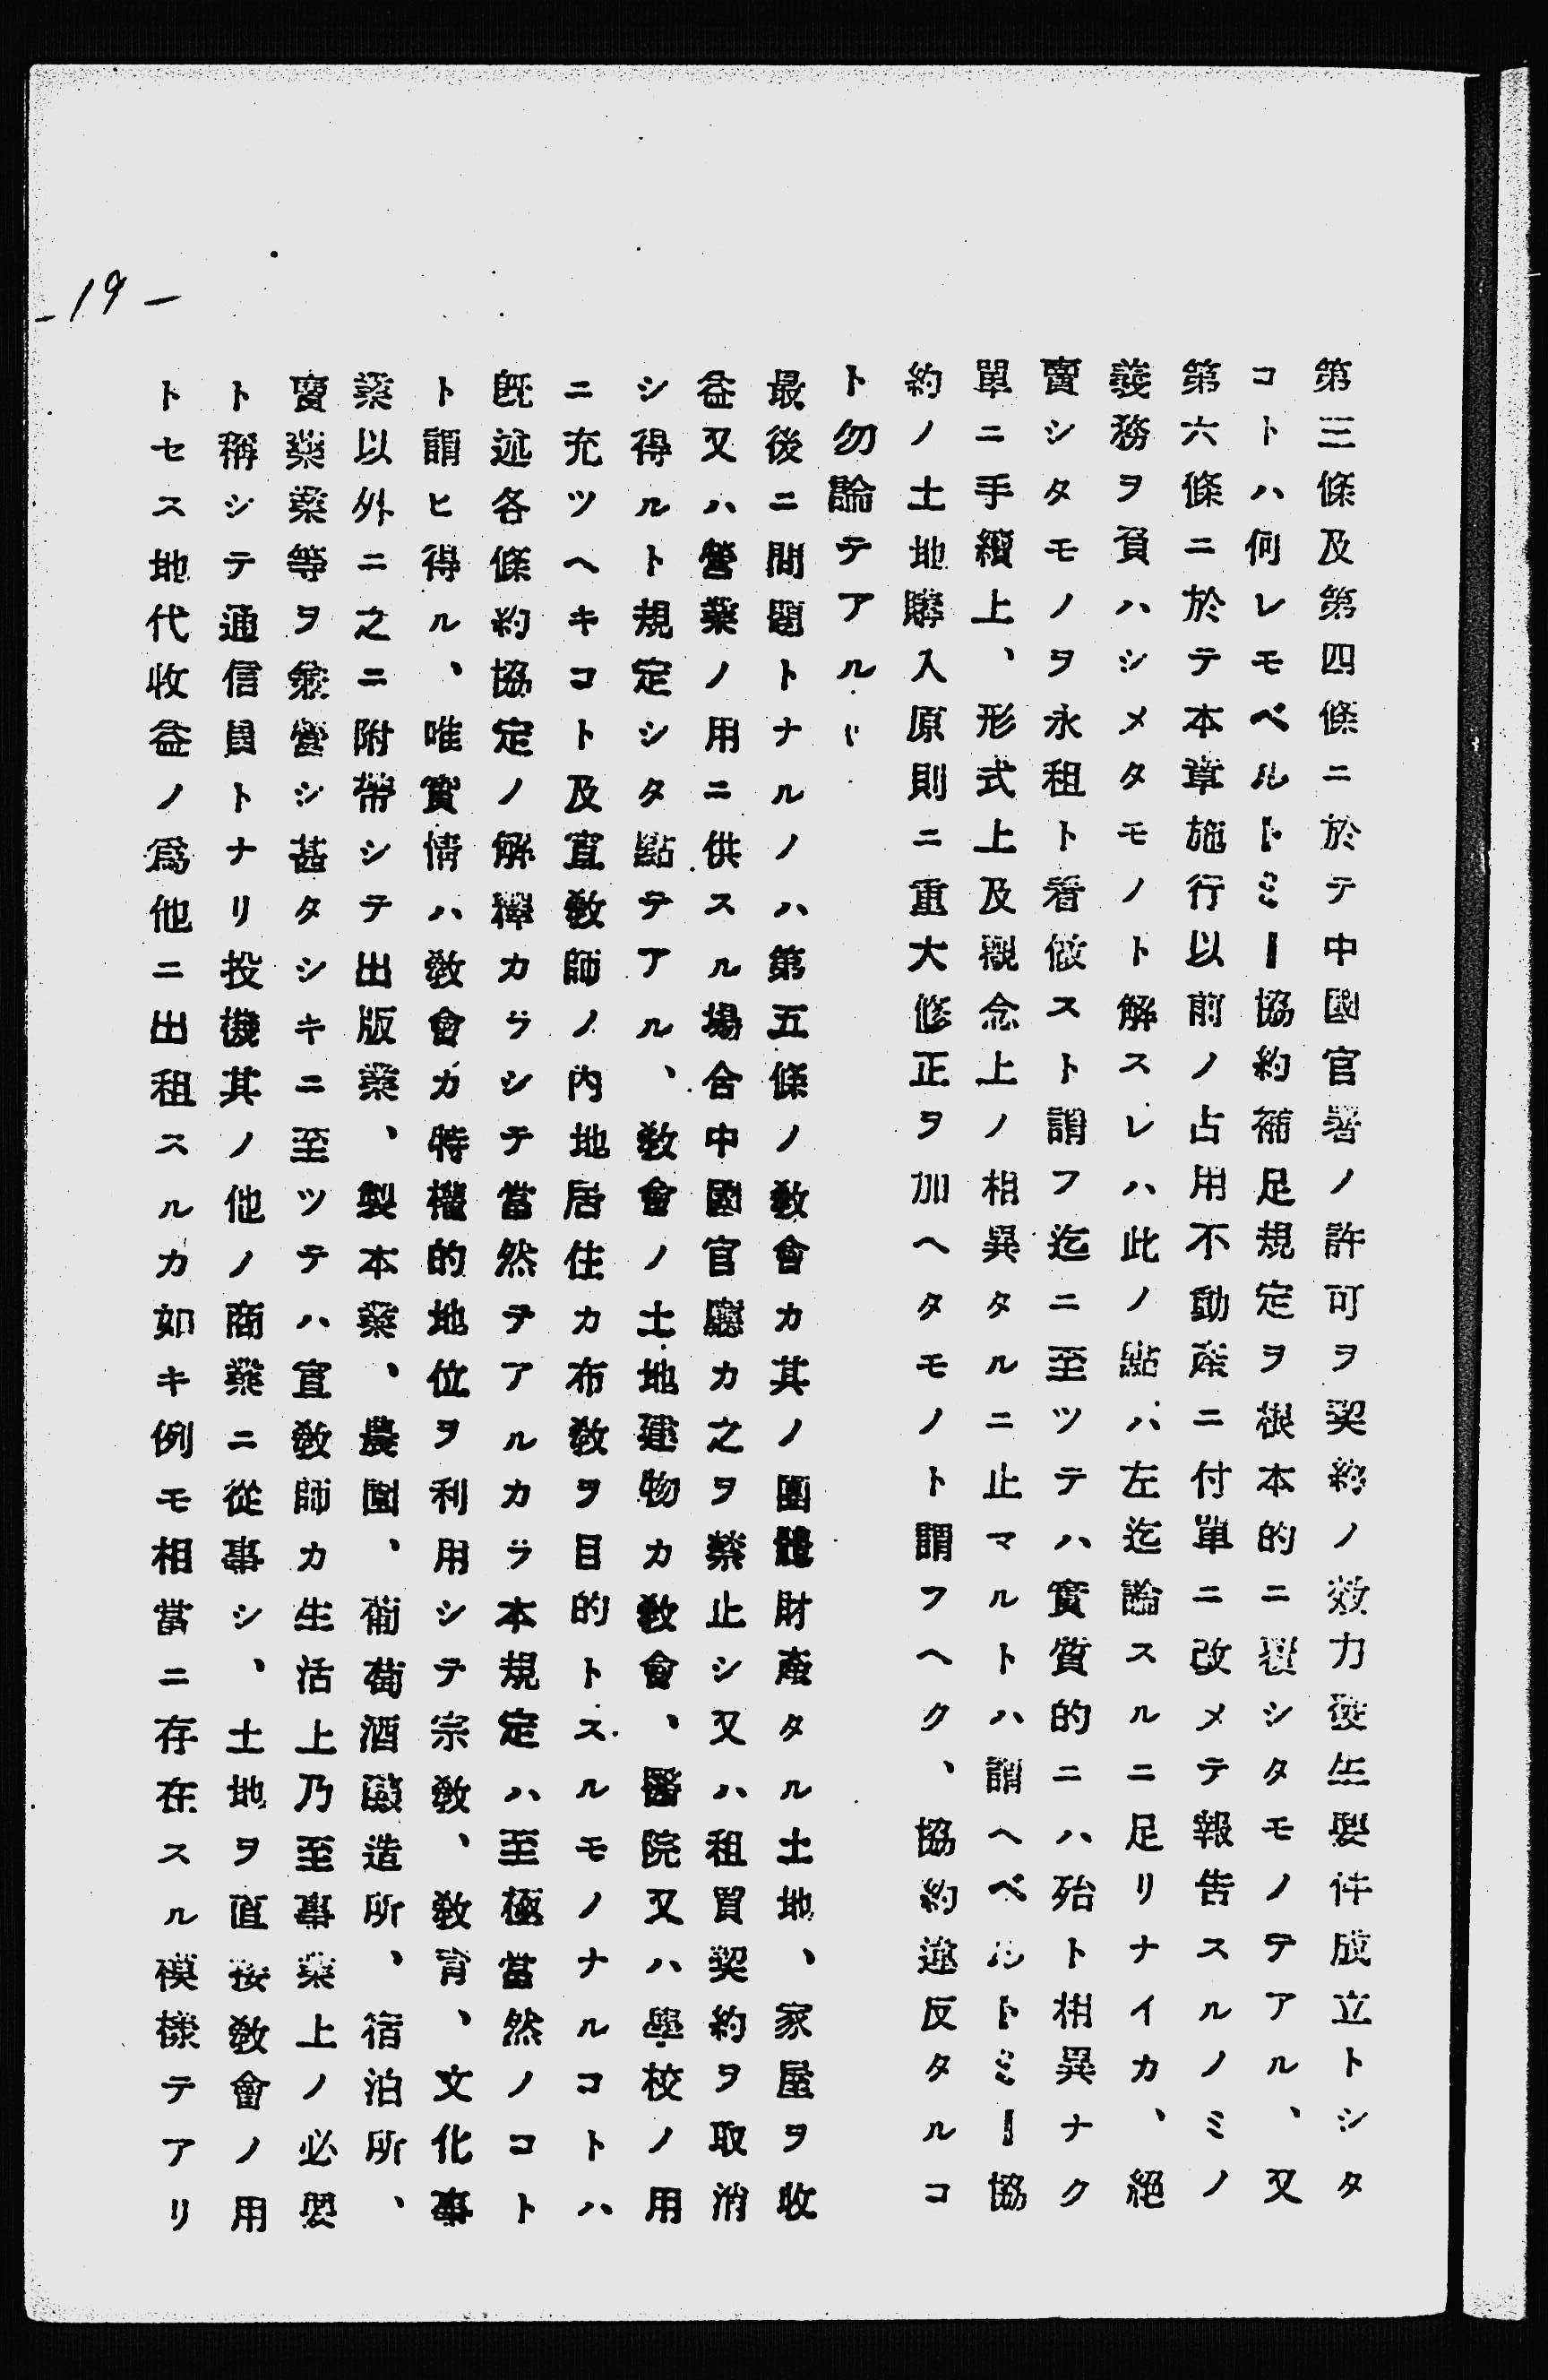 第三條及第四條ニ於テ中國官署ノ許可ヲ契約ノ效力發生要件成立トシタ
コトハ何レモベルトミー協約補足規定ヲ根本的ニ覆シタモノテアル、又
第六條ニ於テ本章施行以前ノ占用不動產ニ付單ニ改メテ報告スルノミノ
義務ヲ負ハシメタモノト解スレハ此ノ點ハ左迄論スルニ足リナイカ、絕
賣シタモノヲ永租ト看做スト謂フ迄ニ至ツテハ實質的ニハ殆ト相異ナク
單ニ手續上、形式上及觀念上ノ相異タルニ止マルトハ謂ヘベルトミー協
約ノ土地購入原則ニ重大修正ヲ加ヘタモノト謂フヘク、協約違反タルコ
ト勿論テアル
最後ニ問題トナルノハ第五條ノ敎會カ其ノ團體財產タル土地、家屋ヲ收
益又ハ營業ノ用ニ供スル場合中國官廳カ之ヲ禁止シ又ハ租買契約ヲ取消
シ得ルト規定シタ點テアル、敎會ノ土地建物カ敎會、醫院又ハ學校ノ用
ニ充ツヘキコト及宣敎師ノ內地居住カ布敎ヲ目的トスルモノナルコトハ
既述各條約協定ノ解釋カラシテ當然テアルカラ本規定ハ至極當然ノコト
ト謂ヒ得ル、唯實情ハ敎會カ特權的地位ヲ利用シテ宗敎、敎育、文化事
業以外ニ之ニ附帶シテ出版業、製本業、農園、葡萄酒釀造所、宿泊所、
賣藥業等ヲ兼營シ甚タシキニ至ツテハ宣敎師カ生活上乃至事業上ノ必要
ト稱シテ通信員トナリ投機其ノ他ノ商業ニ從事シ、土地ヲ直接敎會ノ用
トセス地代收益ノ爲他ニ出租スルカ如キ例モ相當ニ存在スル模樣テアリ
-19-